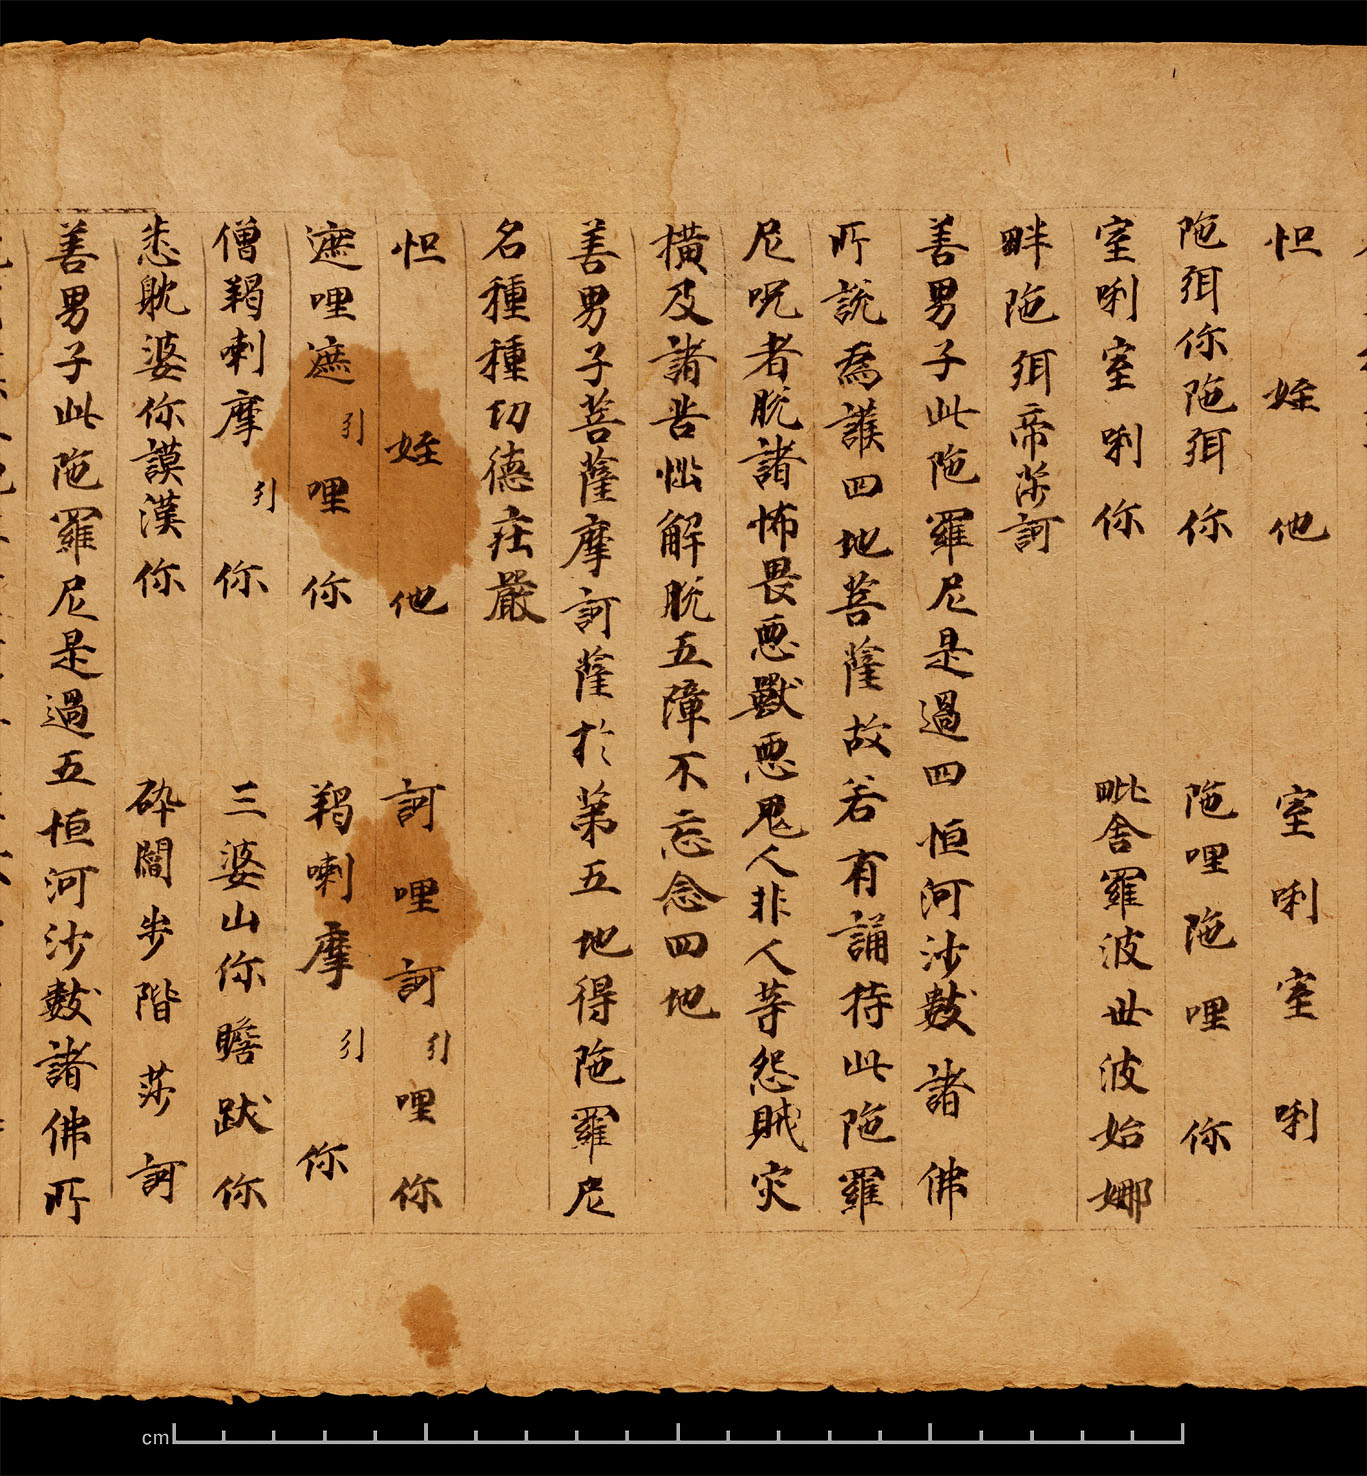 怛姪他室唎室唎
陁弭你陁弭你陁哩陁哩你
室唎室唎你毗舍羅波世波始娜
畔陁弭帝莎訶
善男子此陁羅尼是過四恒河沙數諸佛
所說為護四地菩薩故若有誦持此陁羅
尼呪者脫諸怖畏惡獸惡鬼人非人等怨賊灾
橫及諸苦惱解脫五障不忘念四地
善男子菩薩摩訶薩於第五地得陁羅尼
名種種功德莊嚴
怛姪他訶哩訶引哩你
遮哩遮引哩你羯喇摩引你
僧羯喇摩引你三婆山你瞻跋你
悉耽婆你謨漢你碎闍步階莎訶
善男子此陁羅尼是過五恒河沙數諸佛所